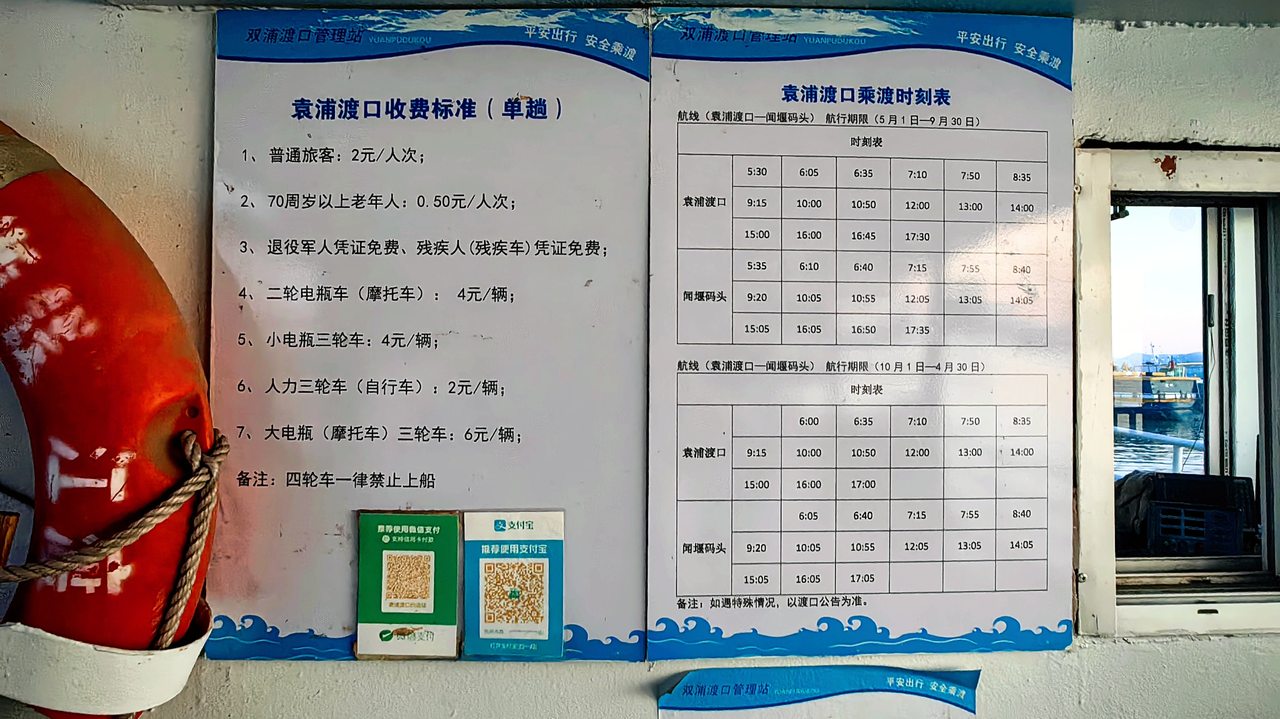 双浦渡口管理站 YUANPUDUKOU
平安出行 安全乘渡
袁浦渡口收费标准（单趟）
1、普通旅客：2元/人次；
2、70周岁以上老年人：0.50元/人次；
3、退役军人凭证免费、残疾人(残疾车)凭证免费；
4、二轮电瓶车（摩托车）： 4元/辆；
5、小电瓶三轮车：4元/辆；
6、人力三轮车（自行车）：2元/辆；
7、大电瓶（摩托车）三轮车：6元/辆；
备注：四轮车一律禁止上船
推荐使用微信支付
支持信用卡付款
微信支付
支付宝
推荐使用支付宝
双浦渡口管理站 YUANPUDUKOU
平安出行 安全乘渡
袁浦渡口乘渡时刻表
航线（袁浦渡口—闻堰码头） 航行期限（5月1日—9月30日）
时刻表
袁浦渡口
5:30 6:05 6:35 7:10 7:50 8:35
9:15 10:00 10:50 12:00 13:00 14:00
15:00 16:00 16:45 17:30
闻堰码头
5:35 6:10 6:40 7:15 7:55 8:40
9:20 10:05 10:55 12:05 13:05 14:05
15:05 16:05 16:50 17:35
航线（袁浦渡口—闻堰码头） 航行期限（10月1日—4月30日）
时刻表
袁浦渡口
6:00 6:35 7:10 7:50 8:35
9:15 10:00 10:50 12:00 13:00 14:00
15:00 16:00 17:00
闻堰码头
6:05 6:40 7:15 7:55 8:40
9:20 10:05 10:55 12:05 13:05 14:05
15:05 16:05 17:05
备注：如遇特殊情况，以渡口公告为准。
双浦渡口管理站 YUANPUDUKOU
平安出行 安全乘渡